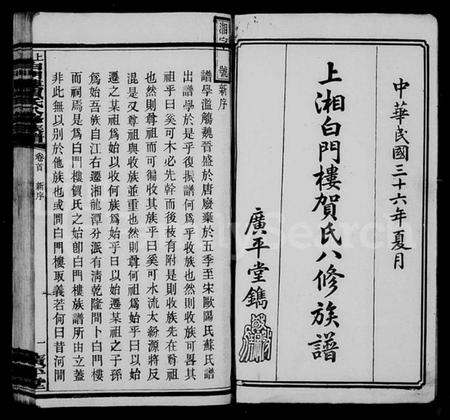 中華民國三十六年夏月
上湘白門樓賀氏八修族譜
廣平堂鐫
湘字 號
新序
譜學濫觴魏晉盛於唐廢棄於五季至宋歐陽氏蘇氏譜
出譜學於是乎復振譜何爲乎收族也然則收族可畧其
祖乎曰奚可木必先幹而後枝育附是則收族先在尊祖
也然則尊祖而可徧收其族乎曰奚可水流太紛源將反
混是又尊祖與收族並重也然則尊祖何爲始乎曰以始
遷之某祖爲始以收何族爲始乎曰以始遷某祖之子孫
爲始吾族自江右遷湘龍潭分派有淸乾隆間卜白門樓
而祠焉是爲白門樓賀氏之始卽白門樓族譜所由立蓋
非此無以別於他族也或問白門樓取義若何曰昔河間
卷首 新序
一